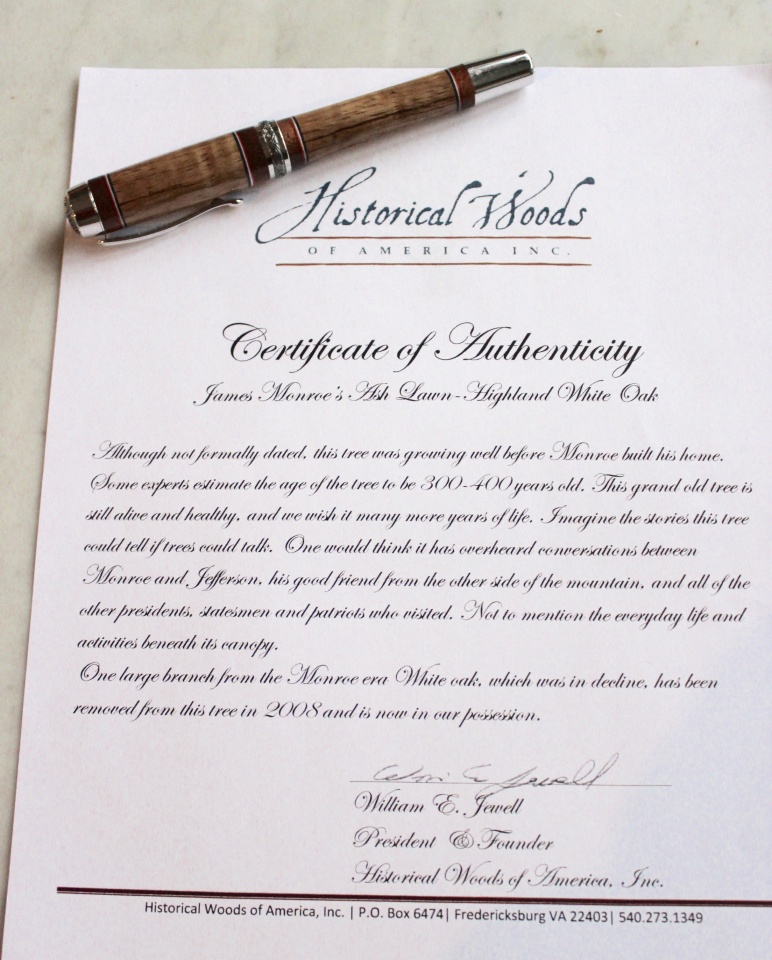 Historical Woods
OF AMERICA INC.
Certificate of Authenticity
James Monroe's Ash Lawn-Highland White Oak
Although not formally dated, this tree was growing well before Monroe built his home.
Some experts estimate the age of the tree to be 300-400 years old. This grand old tree is
still alive and healthy, and we wish it many more years of life. Imagine the stories this tree
could tell if trees could talk. One would think it has overheard conversations between
Monroe and Jefferson, his good friend from the other side of the mountain, and all of the
other presidents, statesmen and patriots who visited. Not to mention the everyday life and
activities beneath its canopy.
One large branch from the Monroe era White oak, which was in decline, has been
removed from this tree in 2008 and is now in our possession.
William E. Jewell
President & Founder
Historical Woods of America, Inc.
Historical Woods of America, Inc. | P.O. Box 6474| Fredericksburg VA 22403| 540.273.1349